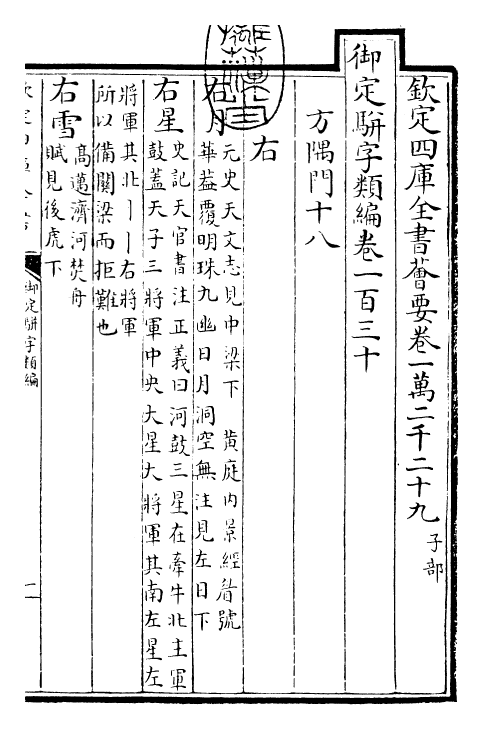 欽定四庫全書薈要卷一萬二千二十九 子部
御定駢字類編卷一百三十
方隅門十八
右
右月 元史天文志見中梁下 黄庭内景經眉號
華葢覆明珠九幽日月洞空無注見左日下
右星 史記天官書注正義曰河鼓三星在牽牛北主軍
鼓葢天子三將軍中央大星大將軍其南左星左
將軍其北丨丨右將軍
所以備關梁而拒難也
右雪 高邁濟河焚舟
賦見後虎下
御定駢字類編